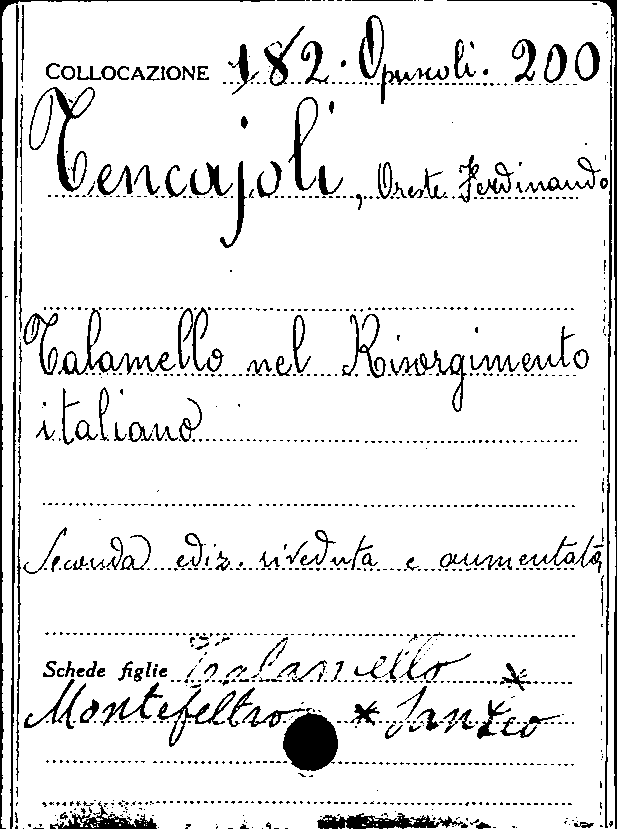 COLLOCAZIONE 182. Opuscoli. 200
Tencajoli, Oreste Ferdinando
Talamello nel Risorgimento
italiano
Seconda ediz. riveduta e aumentata
Schede figlie Talamello *
Montefeltro * San Leo